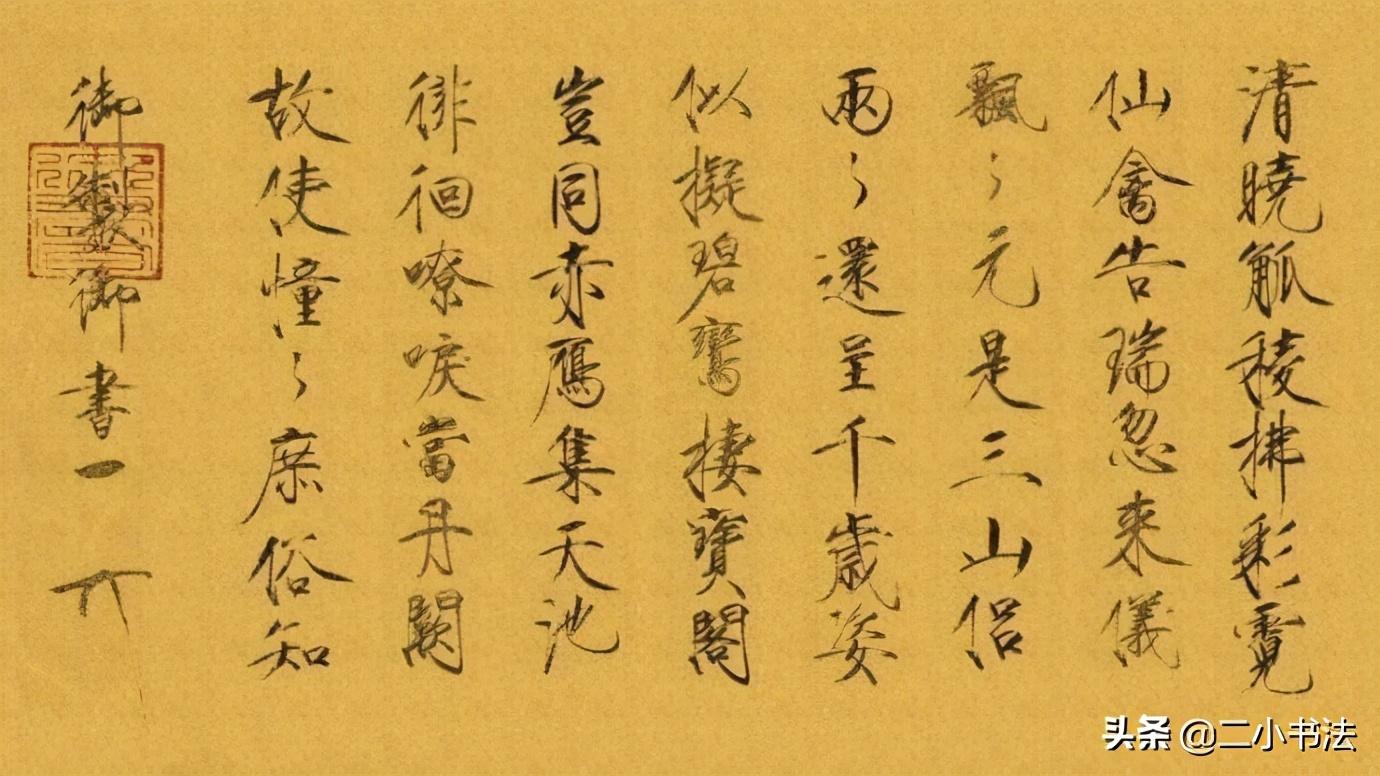 清曉觚稜拂彩霓
仙禽告瑞忽来儀
飄〻元是三山侶
兩〻還呈千歲姿
似擬碧鸞棲寶閣
豈同赤鴈集天池
徘徊嘹唳當丹闕
故使憧〻庶俗知
御製御書
头条 @二小书法